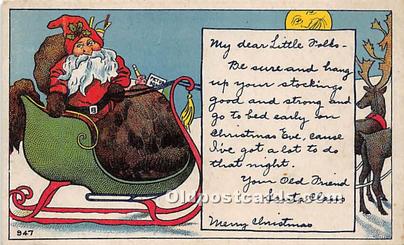 My dear Little Folks-
Be sure and hang
up your stockings
good and strong and
go to bed early on
Christmas Eve, cause
I've got a lot to do
that night.
Your Old Friend
Santa Claus
Merry Christmas
947